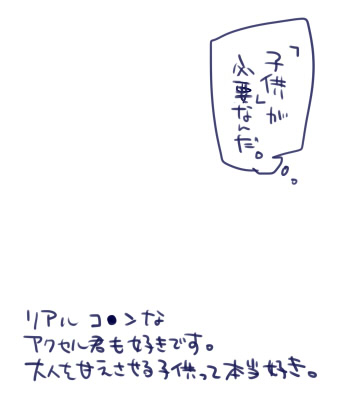 「子供」が
必要なんだ。
リアルコ●ンな
アクセル君も好きです。
大人を甘えさせる子供って本当好き。